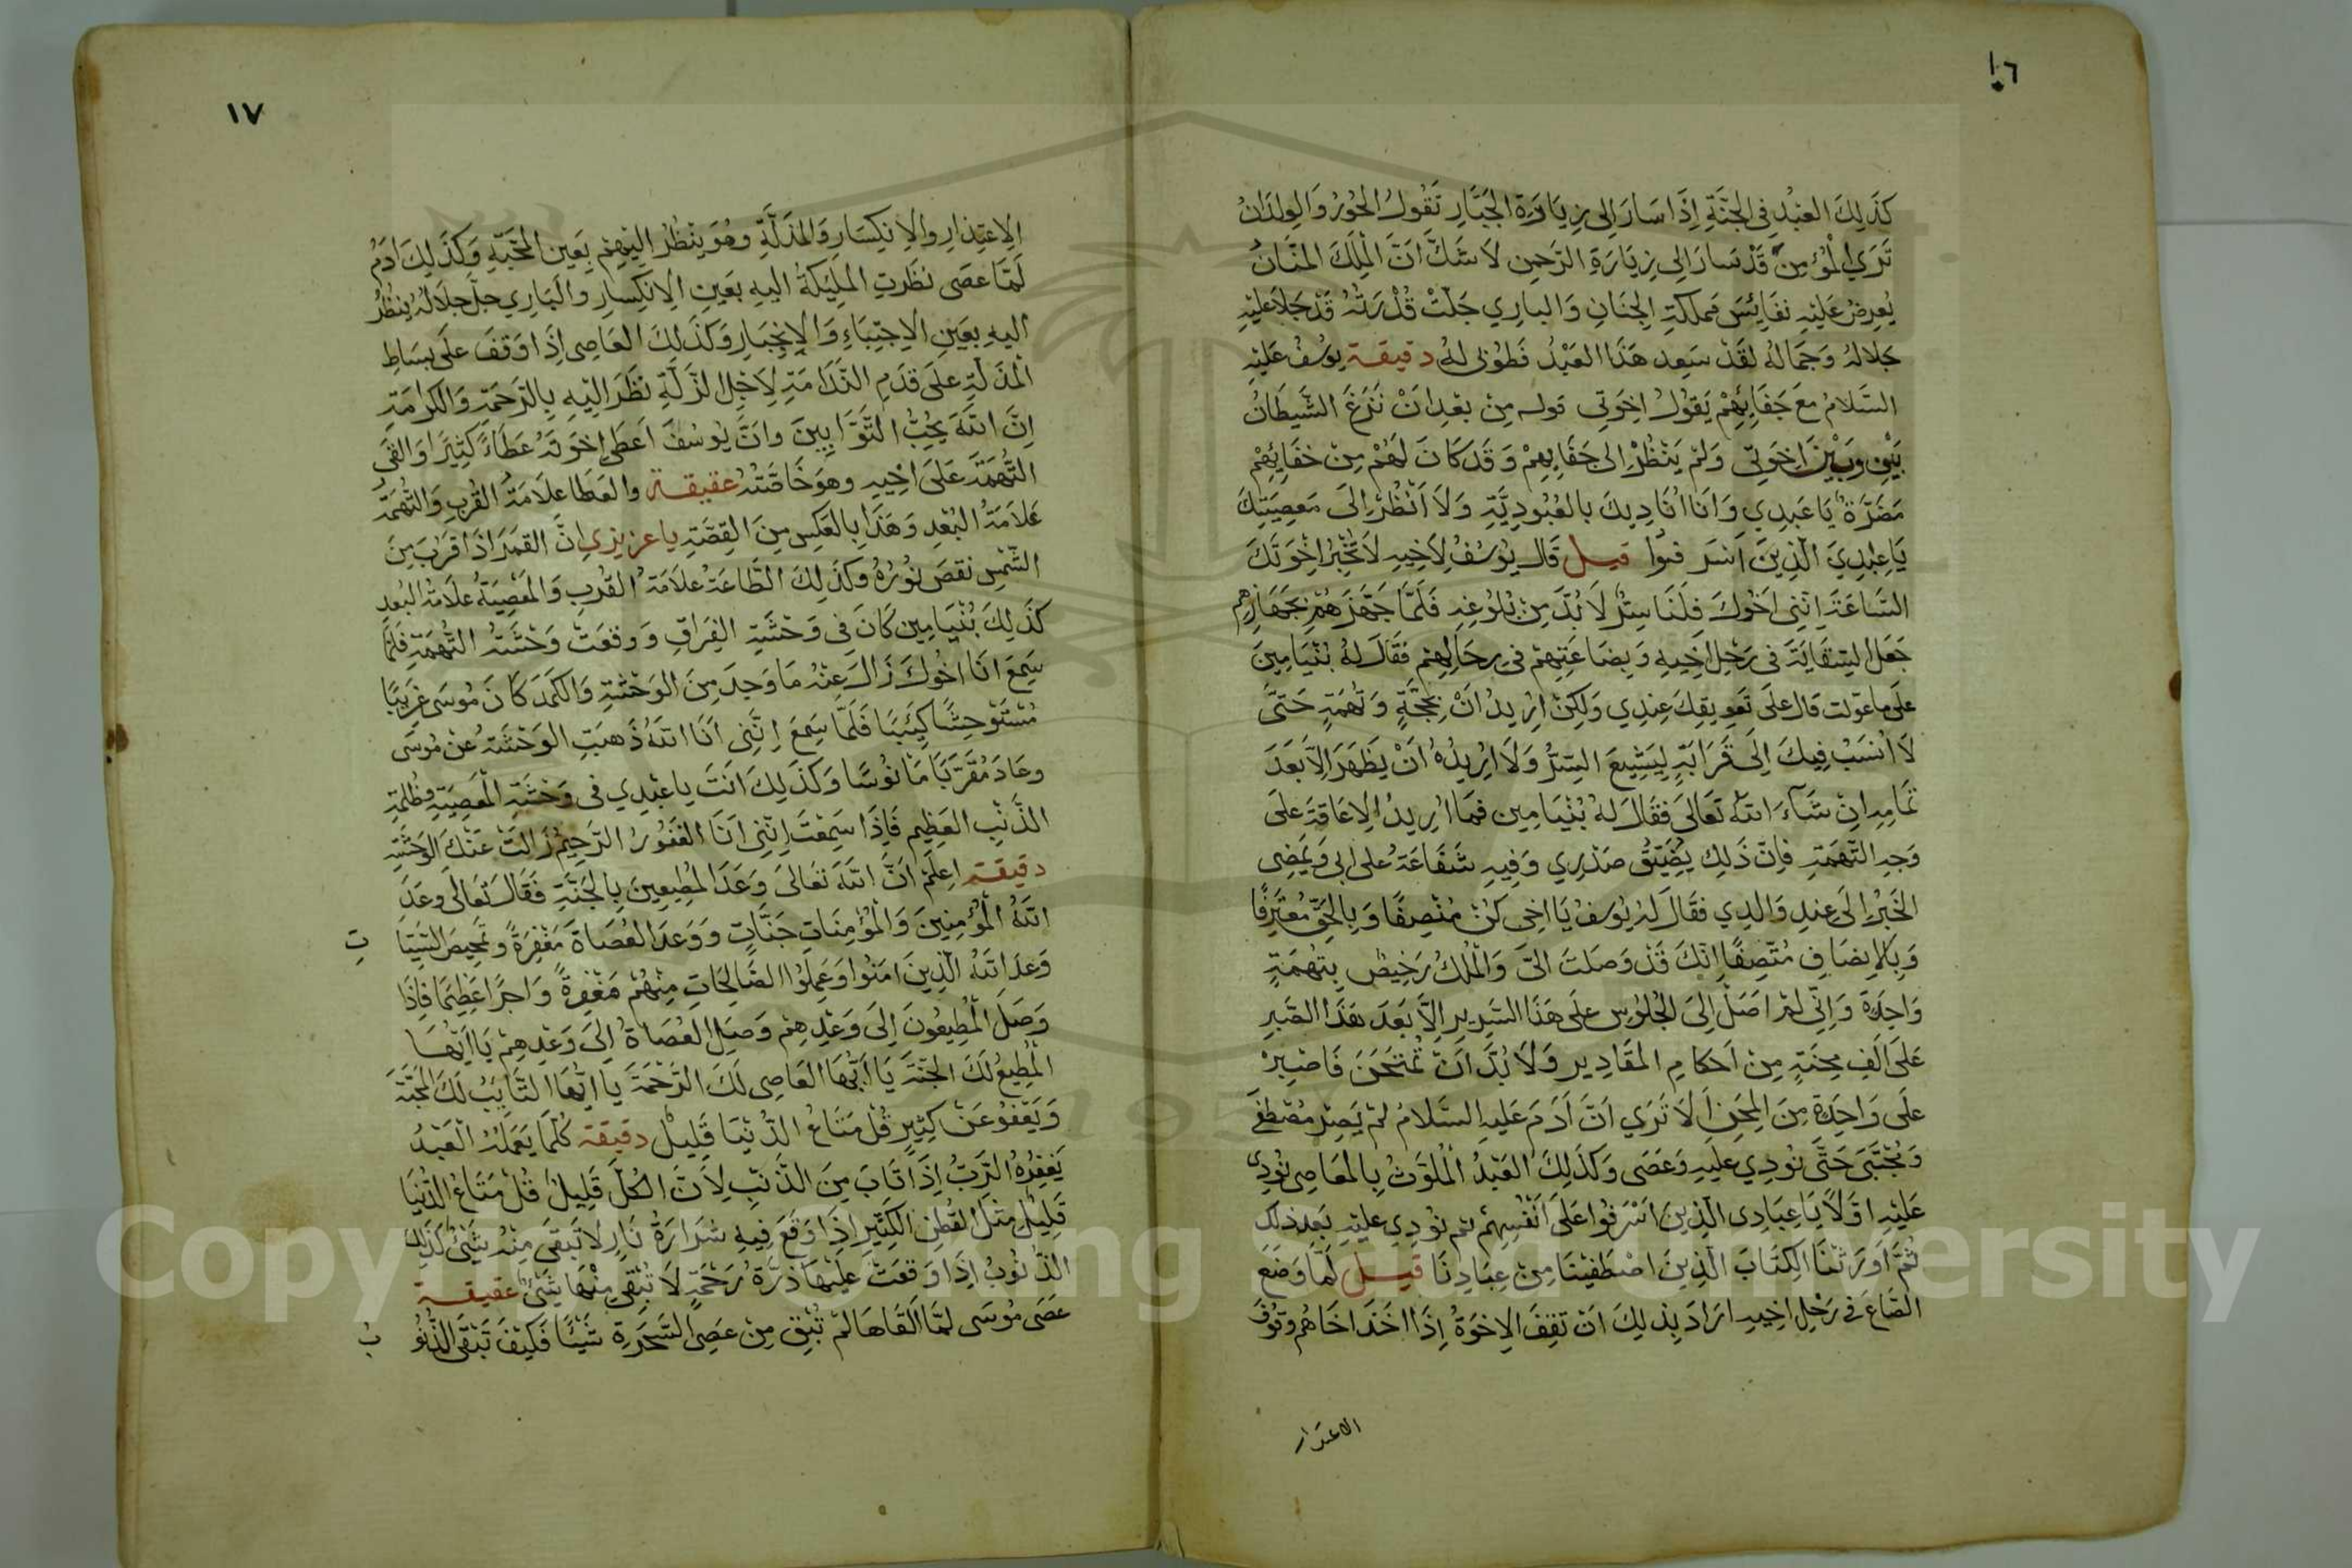 ١٦
كَذَلِكَ العَبْدُ فِي الجَنَّةِ إِذَا سَارَ إِلى زِيَارَةِ الجَبَّارِ تَقُولُ الحُورُ وَالوِلدَانُ
تَرَي المُؤمِنَ قَدْ سَارَ إِلى زِيَارَةِ الرَّحمنِ لَا شَكَّ انَّ المَلِكَ المنَّانُ
يُعرِضُ عَلَيْهِ نَفَائِسَ مَملَكَةِ الجِنَانِ وَالبارِي جَلَّتْ قُدْرَتُهُ قَدْ جَلَا عَلَيْهِ
جَلالهُ وَجَمَالهُ لَقَدْ سَعِدِ هَذَا العَبْدُ فَطُوبى لهُ دقيقة يوسُفُ عَلَيْهِ
السَّلامُ مَعَ جَفَائِهِمْ يَقُولُ اِخوَتِي قوله مِنْ بَعْدِ انْ نَزَغَ الشَّيطَانُ
بَيْنِي وَبَيْنَ اِخوَتِي وَلَمْ يَنْظُرْ إِلى جَفَايِهِمْ وَقَدْ كَانَ لَهُمْ مِنْ جَفَائِهِمْ
مَضَرَّةٌ يَا عَبْدِي وَانَا انَادِيكَ بالعُبُودِيَّةِ وَلَا اَنْظُرُ اِلَى مَعصِيَتِكَ
يَا عِبَادِيَ الَّذِينَ اَسْرَفُوا قيل قَالَ يُوسُفُ لِاَخِيهِ لَا تُخْبِرْ اِخْوَتَكَ
السَّاعَةَ اِنَّنِي اَخُوكَ فَلَنَا سِرٌّ لَا بُدَّ مِنْ بُلُوغِهِ فَلَمَّا جَهَّزَهُمْ بِجَهَازِهِم
جَعَلَ السِّقَايَةَ فِي رَحْلِ اَخِيهِ وَبِضَاعَتِهِمْ فِي رِحَالِهِمْ فقَالَ لهُ بُنْيَامِينَ
عَلَى ما عَوّلت قال عَلَى تَعوِيقِكَ عِنْدِي وَلَكِنْ اُرِيدُ انْ بِحُجَّةٍ وَتُهْمَةٍ حَتَّى
لَا اُنسَبُ فِيكَ اِلَى قَرَابَةٍ لِيَشِيعَ السِّرُّ وَلَا اُرِيدُهُ اَنْ يَظْهَرَ اِلَّا بَعْدَ
تَمَامِهِ اِنْ شَآءَ اللهُ تَعَالَى فَقَالَ لهُ بُنْيَامِين فمَا اُرِيدُ الاعَاقَةَ عَلَى
وَجهِ التُّهَمَةِ فاِنَّ ذَلِكَ يُضَيِّقُ صَدْرِي وَفِيهِ شَفَاعَةٌ عَلَى اَبِي وَيَمضِي
الخَبَرُ اِلَى عِنْدِ وَالِدِي فقَالَ لَهُ يُوسُفُ يَا اخِي كُنْ مُنْصِفًا وَبِالحَقِّ مُعتَرِفًا
وَبِالاِنصَافِ مُتَّصِفًا اِنَّكَ قَدْ وَصَلتَ اِلَيَّ وَالمُلْكُ رَخِيصٌ بِتُهمَةٍ
وَاحِدَةٍ وَاِنِّي لَمْ اصَلْ اِلَى الجُلُوسِ عَلَى هَذَا السَّرِيرِ اِلَّا بَعْدَ هَذَا الصَّبرِ
عَلَى اَلفِ مِحنَةٍ مِنْ اَحكامِ المَقَادِيرِ وَلَا بُدَّ اَنْ تُمْتَحَنَ فَاصْبِرْ
عَلَى وَاحِدَةٍ مِنَ المِحَنِ اَلَا تَرَي اَنَّ آدَمَ عَلَيهِ السَّلامُ لَمْ يَصِرْ مُصْطَفَى
وَمُجْتَبَى حَتَّى نُودِي عَلَيهِ وَعَصَى وَكَذَلِكَ العَبْدُ المُلَوَّثُ بِالمَعَاصِي نُودِي
عَلَيْهِ اَوَّلًا يَا عِبَادِي الَّذِينَ اَسْرَفُوا عَلَى اَنْفُسِهِمْ ثم نُودِي عَلَيْهِ بَعدَ ذلك
ثُمَّ اَورَثْنَا الكِتَابَ الَّذِينَ اصْطَفَيْنَا مِنْ عِبَادِنَا قيل لَمَّا وَضَعَ
الصَّاعَ فِي رَحْلِ اَخِيهِ ارَادَ بِذلِكَ انْ تَقِفَ الاِخوَةُ اِذَا اَخَذَ اخَاهُم وقُوفَ
الاعتذار
١٧
الِاعتِذَارِ والاِنكِسَارِ وَالمَذَلَّةِ وهُوَ يَنْظُرُ اِلَيْهِمْ بِعَينِ المحَبَّةِ وَكَذَلِكَ ادَمُ
لَمَّا عَصَى نظَرَتِ المَلئِكَةُ اليهِ بعَينِ الاِنكِسارِ والبَارِي جلّ جَلَالُهُ يَنْظُرُ
اليهِ بِعَينِ الاِجتِبَاءِ وَالاِنجِبَارِ وَكَذَلِكَ العَاصِي اِذَا وَقفَ عَلَى بِسَاطِ
المَذَلَّةِ عَلَى قدَمِ النَّدَامَةِ لِاَجْلِ الزَّلَّةِ نَظَرَ الَيْهِ بِالرَّحمَةِ وَالكَرَامَةِ
اِنَّ اللهَ يُحِبُّ التَّوَّابِينَ وانَّ يُوسُفَ اَعطَى اِخوَتَهُ عَطَاءً كَثِيرًا وَالقَى
التُّهمَةَ عَلَى اَخِيهِ وهوَ خَاصَّتُهُ عقيقة والعَطَا عِلَامَةُ القُربِ وَالتُّهمَةُ
عَلَامَةُ البُعْدِ وَهَذَا بالعَكِسِ مِنَ القِصَّةِ يا عزيزي انَّ القَمَرَ اذَا قَرَبَ مِنَ
الشَّمسِ نقصَ نُورُهُ وكَذلِكَ الطَّاعَةُ علَامَةُ القُربِ وَالمَعْصِيَةُ علَامَةُ البُعدِ
كَذَلِكَ بُنْيَامِين كَانَ فِي وَحْشَةِ الفِرَاقِ وَوقَعَتْ وَحْشَتهُ التُّهمَةِ فَلَمَّا
سَمِعَ انَا اخُوكَ زَالَ عَنْهُ مَا وَجدَ مِنَ الوَحْشَةِ وَالكَمَدَ كَانَ مُوسَى غَرِيبًا
مُسْتَوْحِشًا كَئِيبًا فَلَمَّا سَمِعَ اِنَّنِي اَنَا اللهُ ذَهبَتِ الوَحْشَةُ عَنْ مُوسَى
وعَادَ مُقَرَّبًا مَانُوسًا وَكَذلِكَ اَنتَ يا عَبْدِي فِي وَحْشَةِ المعصِيَةِ وظُلمَةِ
الذَّنْبِ العَظِيمِ فَاِذَا سَمِعْتَ اِنَّنِي اَنَا الغَفُورُ الرَّحِيمُ زَالَتْ عَنكَ الوَحْشَةِ
دقيقة اِعلَمْ اَنَّ اللهَ تعَالَى وَعَدَ المُطِيعِينَ بِالجَنَّةِ فَقَالَ تَعَالَى وعَدَ
اللهُ المُؤمِنِينَ وَالمُؤمِنَاتِ جَنَّاتٍ وَوَعدَ العُصَاةَ مَغْفِرَةً وتَمحِيصَ السَّيِّا
تِ
وَعدَ اللهُ الَّذِينَ امَنُوا وَعَمِلُوا الصَّالِحَاتِ مِنْهُمْ مَغْفِرَةً وَاَجرًا عَظِيمًا فَاِذَا
وَصَلَ المُطِيعُونَ اِلَى وَعْدِهِمْ وَصَلَ العُصَاةُ اِلَى وَعْدِهِمْ يَا اَيُّهَا
المُطِيعُ لَكَ الجَنَّةَ يَا اَيُّهَا العَاصِي لَكَ الرَّحْمَةَ يَا ايُّهَا التَّايِبُ لَكَ المَحَبَّةَ
وَيَعْفُو عَنْ كَثِيرٍ قُلْ مَتَاعُ الدُّنيَا قَلِيلٌ دقيقة كُلَّمَا يَعمَلُهُ العَبْدُ
يَغفِرُهُ الرَّبُّ اِذَا تَابَ مِنَ الذَّنْبِ لِاَنَّ الكُلَّ قَلِيلٌ قُلْ مَتَاعُ الدُّنيَا
قَلِيلٌ مَثلَ القُطنِ الكَثِيرِ اِذَا وَقَعَ فِيهِ شَرَارَةُ نَارٍ لَا تَبقَى مِنْهُ شَيْئٌ كَذَلِكَ
الذُّنُوبُ اِذَا وَقَعَتْ عَلَيْهَا ذَرَّةُ رَحْمَةٍ لَا تُبْقِي مِنْهَا شَيْئٌ عقيقة
عَصَى مُوسَى لمَّا اَلقَاهَا لَمْ تُبْقِ مِنْ عَصِيِّ السَّحَرَةِ شَيْئًا فَكَيْفَ تَبْقَى الذُّنُو
بُ
Copyright © King Saud University